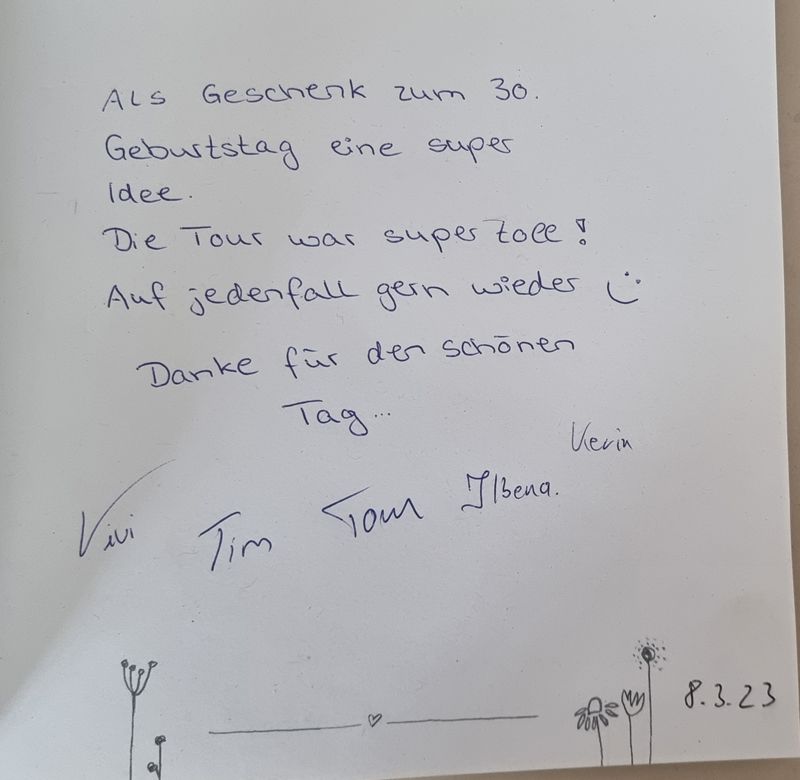 Als Geschenk zum 30.
Geburtstag eine super
Idee.
Die Tour war super toll!
Auf jedenfall gern wieder :)
Danke für den schönen
Tag...
Kevin
Vivi Tim Tom
8.3.23